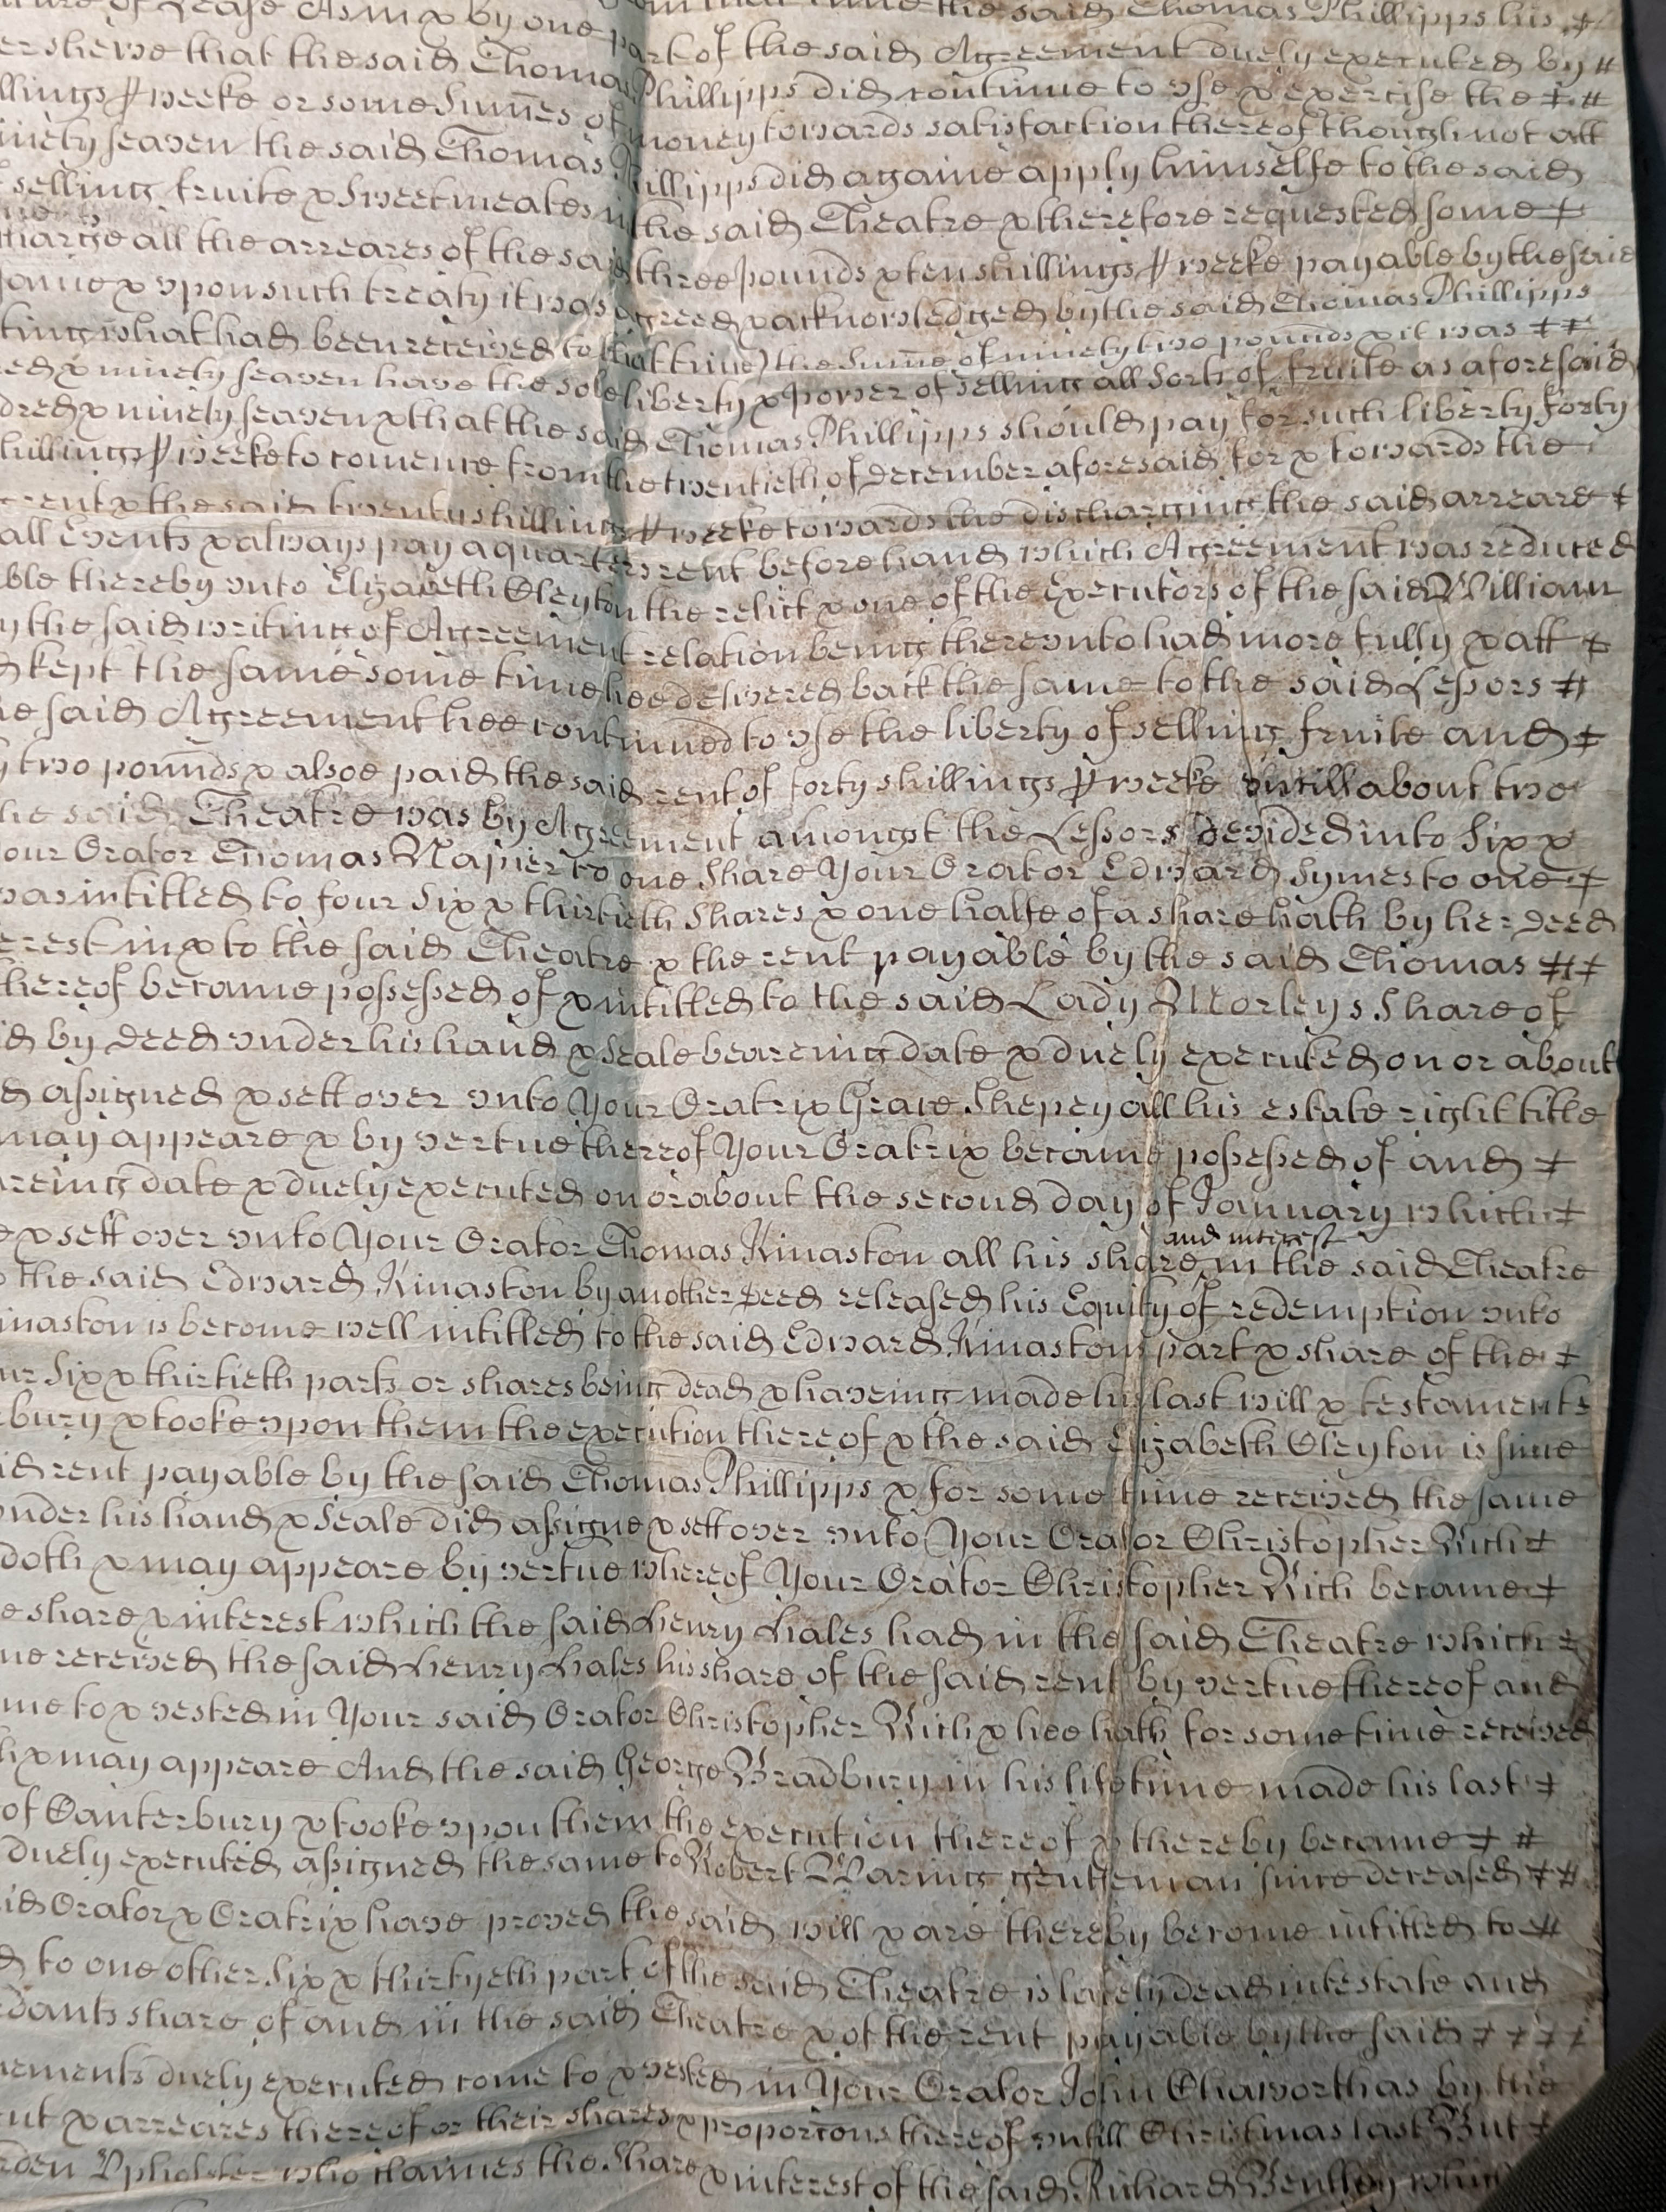 of Lease As in & by one part of the said Agreement duely executed by
that the said Thomas Phillipps did continue to use & exercise the
weeke or some Summes of money towards satisfaction thereof though not all
seaven the said Thomas Phillipps did againe apply himselfe to the said
selling fruite & Sweetmeates in the said Theatre & therefore requested some
all the arreares of the said three pounds & ten shillings p weeke payable by the said
& upon such treaty it was agreed & acknowledged by the said Thomas Phillipps
what had been received to that time) the Summe of ninety two pounds & it was
& ninety seaven have the sole liberty & power of selling all Sorts of fruite as aforesaid
& ninety seaven & that the said Thomas Phillipps should pay for such liberty forty
p weeke to comence from the twentieth of December aforesaid for & towards the
rent & the said twenty shillings p weeke towards the discharging the said arreare
all Events & alwayes pay a quarters rent before hand which Agreement was reduced
thereby unto Elizabeth Cleyton the relict & one of the Executors of the said William
the said writing of Agreement relation being thereunto had more fully & att
kept the same some time hee delivered back the same to the said Lessors
said Agreement hee continued to use the liberty of selling fruite and
two pounds & alsoe paid the said rent of forty shillings p weeke untill about two
said Theatre was by Agreement amongst the Lessors devided into Six &
our Orator Thomas Napier to one Share Your Orator Edward Symes to one
was intitled to four Six & thirtieth Shares & one halfe of a share hath by her Deed
in & to the said Theatre & the rent payable by the said Thomas
thereof became possessed of & intitled to the said Lady Morleys Share of
by Deed under his hand & Seale beareing date & duely executed on or about
assigned & sett over unto Your Oratrix Grace Shepey all his estate right title
may appeare & by vertue thereof Your Oratrix became possessed of and
date & duely executed on or about the second day of January which
& sett over unto Your Orator Thomas Kinaston all his share and interest in the said Theatre
the said Edward Kinaston by another Deed released his Equity of redemption unto
is become well intitled to the said Edward Kinastons part & share of the
Six & thirtieth parts or shares being dead & haveing made his last will & testament
& tooke upon them the execution thereof & the said Elizabeth Cleyton is since
rent payable by the said Thomas Phillipps & for some time received the same
under his hand & Seale did assigne & sett over unto Your Orator Christopher Rich
doth & may appeare by vertue whereof Your Orator Christopher Rich became
share & interest which the said Henry Hales had in the said Theatre which
received the said Henry Hales his share of the said rent by vertue thereof and
to & vested in Your said Orator Christopher Rich & hee hath for some time received
& may appeare And the said George Bradbury in his life time made his last
of Canterbury & tooke upon them the execution thereof & thereby became
duely executed assigned the same to Robert Waring gentleman since deceased
Orator & Oratrix have proved the said will & are thereby become intitled to
to one other Six & thirtyeth part of the said Theatre is lately dead intestate and
share of and in the said Theatre & of the rent payable by the said
duely executed come to & vested in Your Orator John Chaworth as by the
& arreares thereof or their shares & proporcons thereof untill Christmas last But
Upholster who claimes the Share & interest of the said Richard Bentley